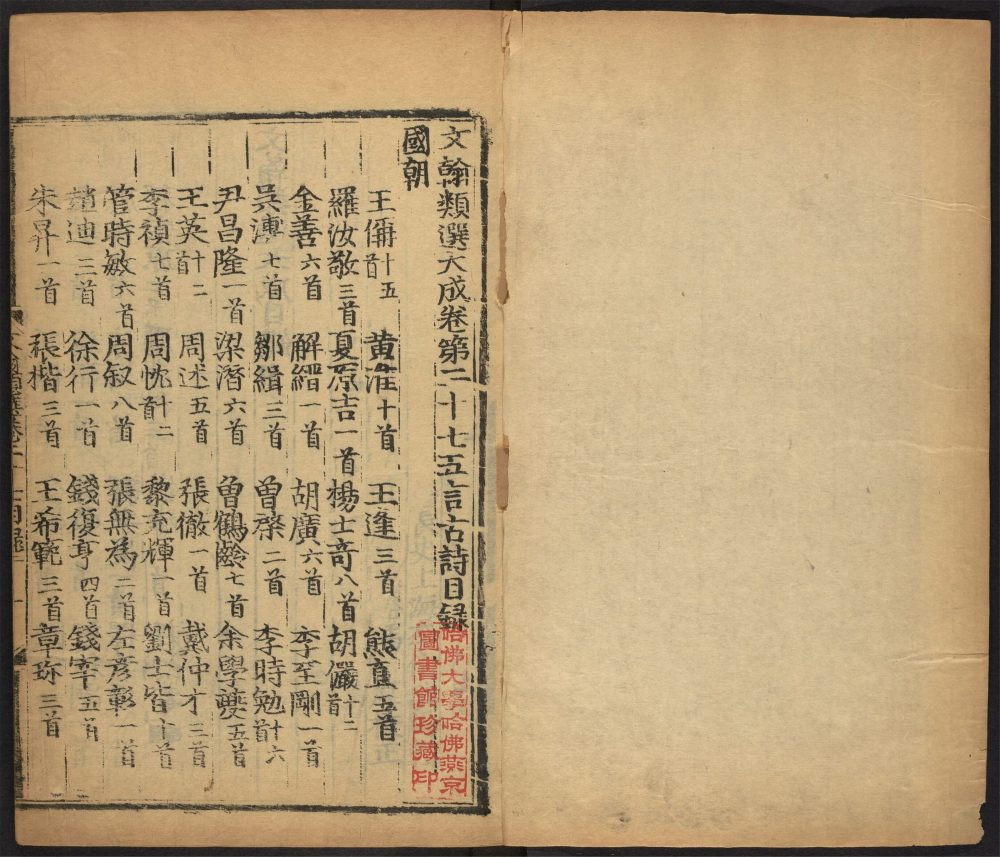 文翰類選大成卷第二十七五言古詩目録
國朝
王偁十五首 黄淮十首 王逢三首 熊直五首
羅汝敬三首 夏原吉一首 楊士竒八首 胡儼十二首
金善六首 解縉一首 胡廣六首 李至剛一首
吳溥七首 鄒緝三首 曾棨二首 李時勉十六首
尹昌隆一首 梁潛六首 曾鶴齡七首 余學夔五首
王英十二首 周述五首 張徹一首 戴仲才三首
李禎七首 周忱十二首 黎充輝一首 劉士皆十首
管時敏六首 周叙八首 張無為二首 左彦彰一首
趙迪三首 徐行一首 錢復亨四首 錢宰五首
朱昇一首 張楷三首 王希範三首 章珎三首
哈佛大學哈佛燕京
圖書館珍藏印